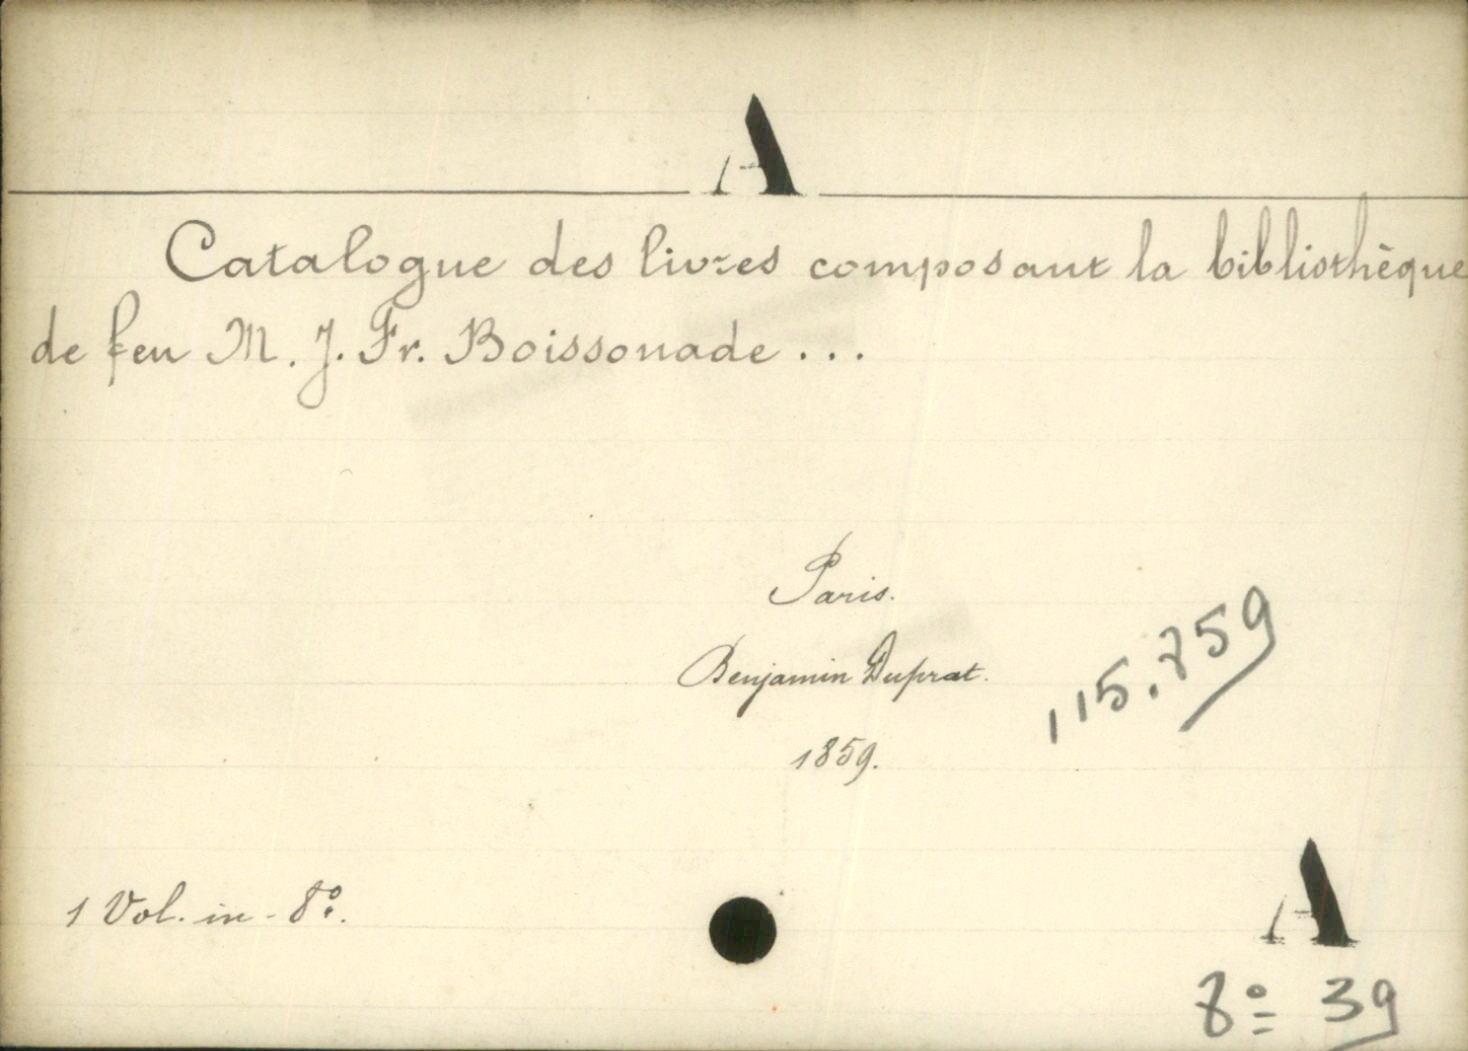 A
Catalogue des livres composant la bibliothèque
de feu M. J. Fr. Boissonade ...
Paris.
Benjamin Duprat.
115.759
1859.
1 Vol. in-8º.
A
8º 39